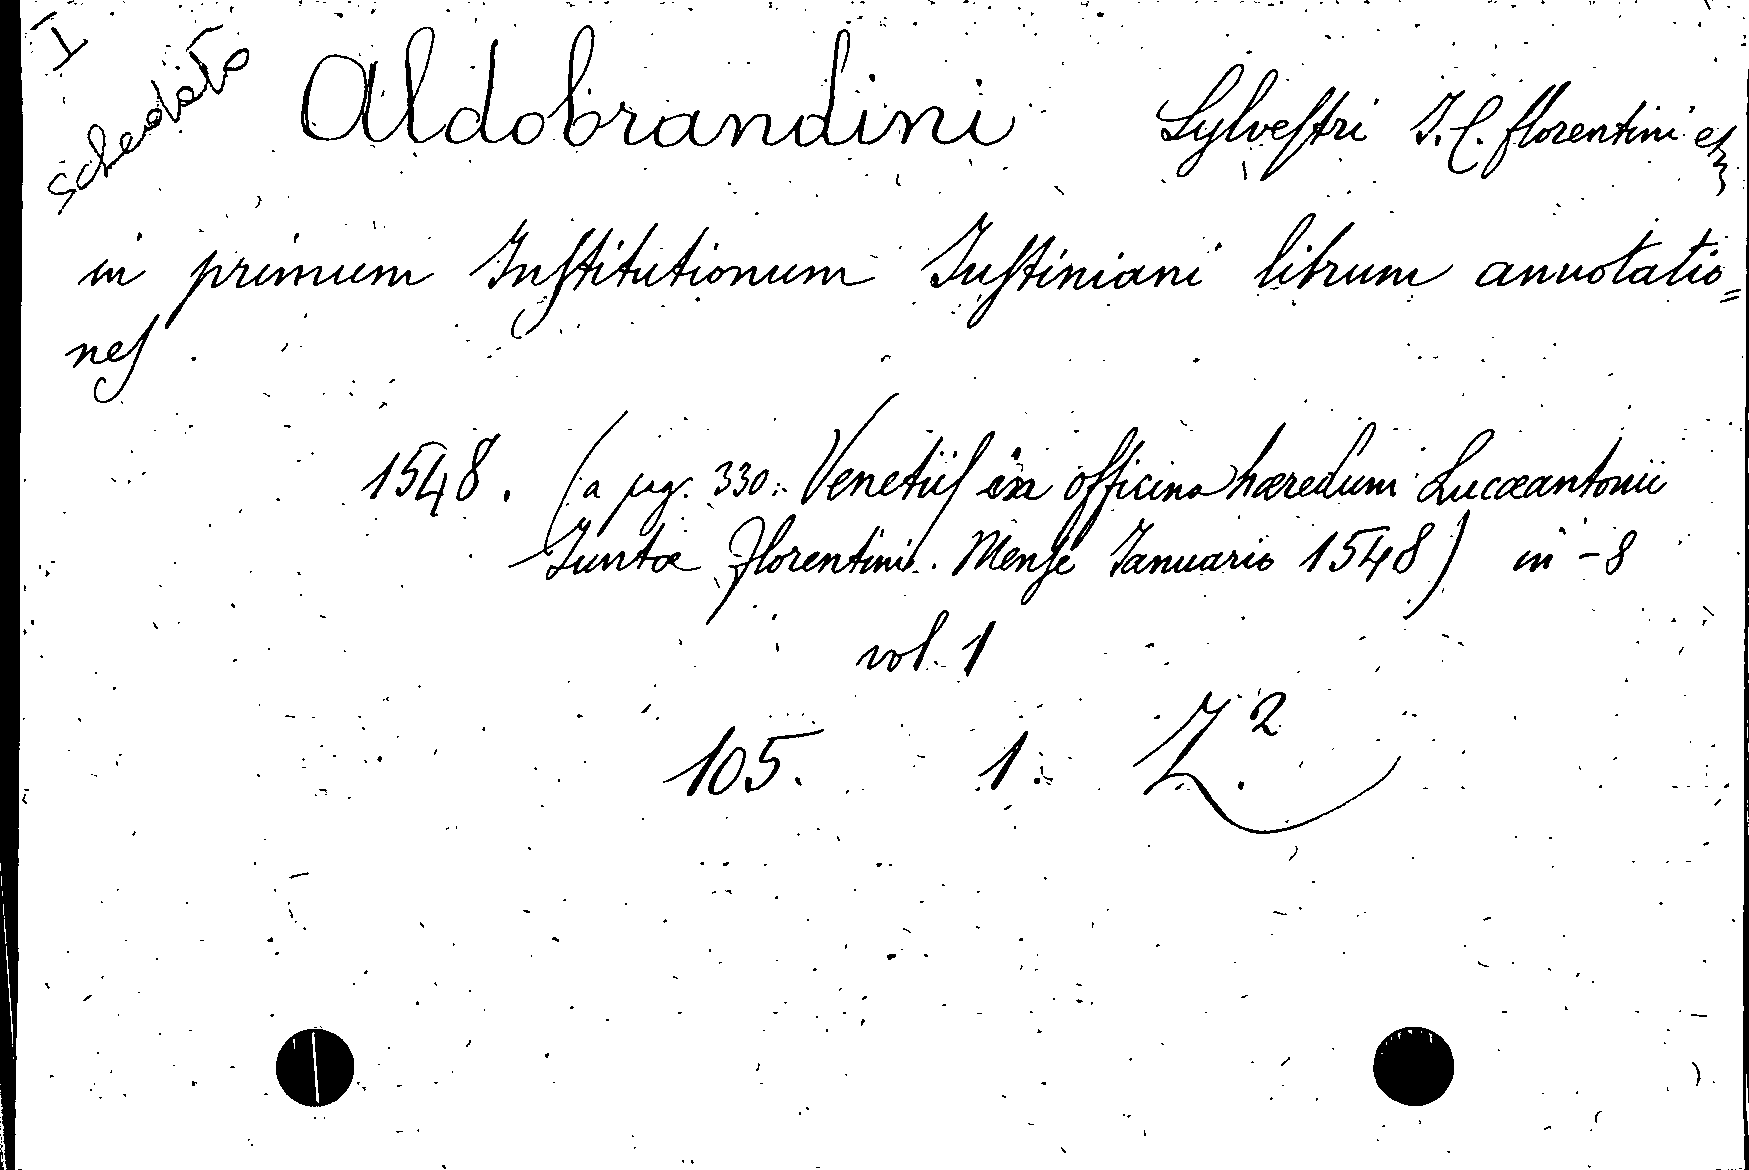 I
schedato
Aldobrandini Sylveſtri I. C. florentini etc
in primum Inſtitutionum Iuſtiniani librum annotatio=
neſ.
1548. (a pag. 330: Venetiiſ in officina hæredum Lucæantonii
Juntæ florentini. Menſe Ianuario 1548) in-8
vol. 1
105. 1. Z.²